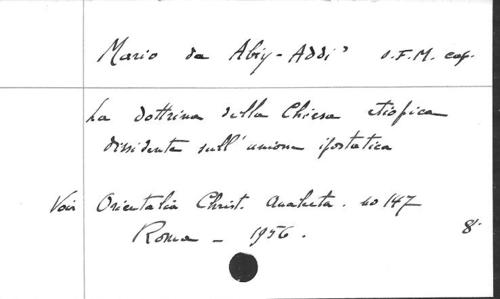 Mario da Abiy-Addi' O.F.M. cap.
La dottrina della Chiesa etiopica
dissidente sull'unione ipostatica
Voir Orientalia Christ. Analecta. no 147
Roma - 1956. 8°